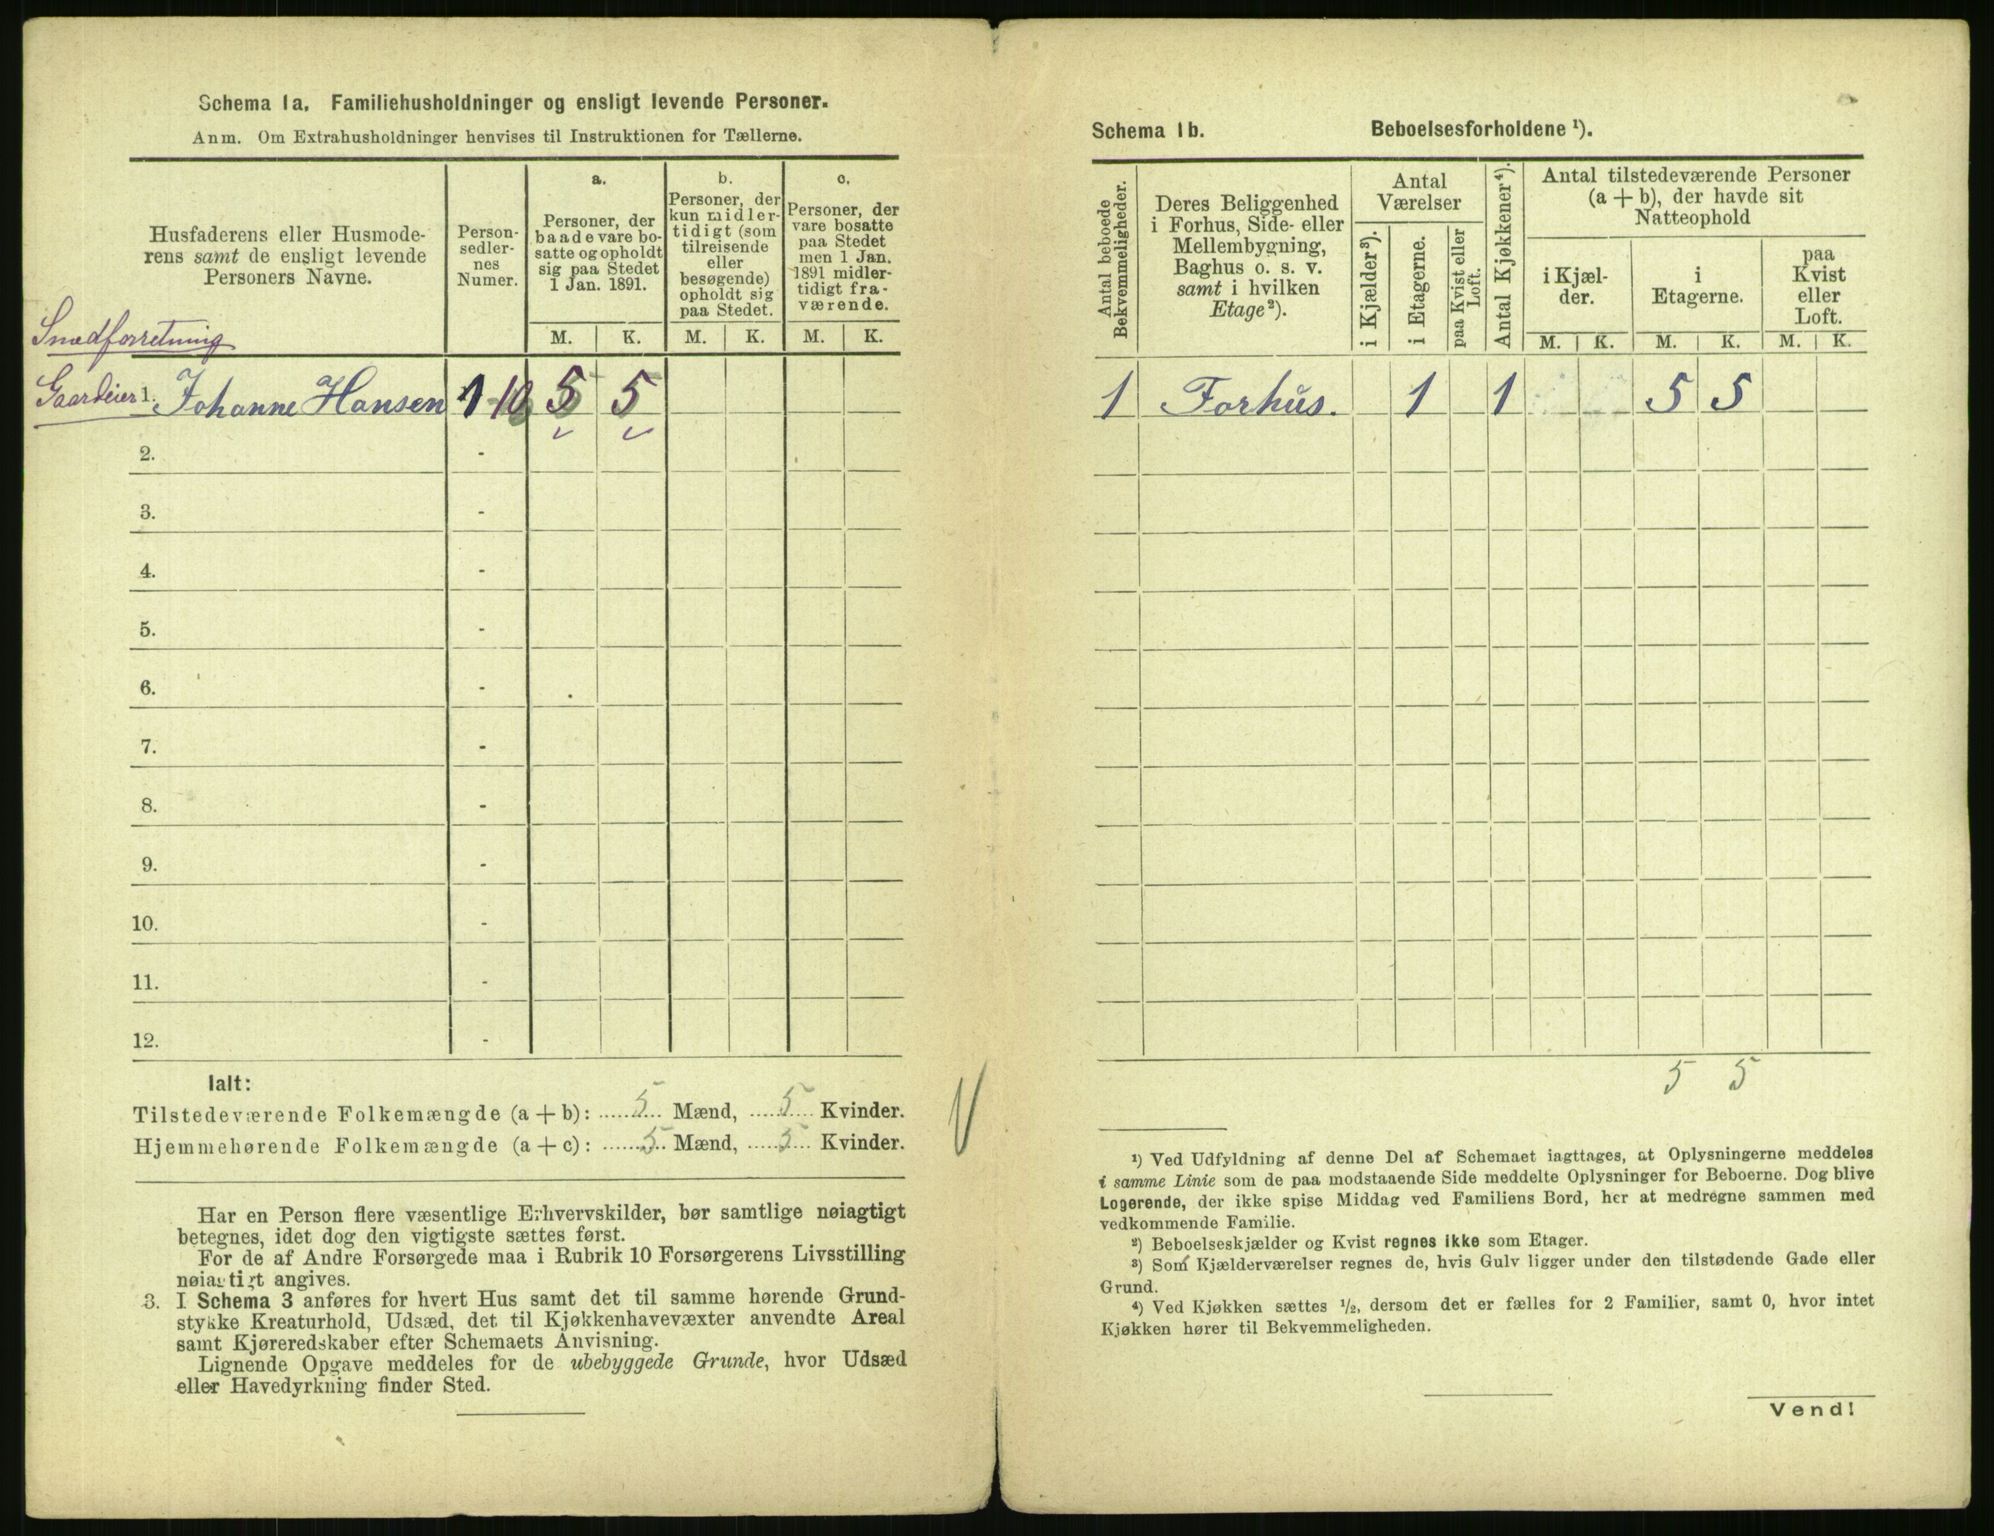 Schema 1a. Familiehusholdninger og ensligt levende Personer.
Anm. Om Extrahusholdninger henvises til Instruktionen for Tællerne.
Husfaderens eller Husmoderens samt de ensligt levende Personers Navne.
Person-sedlernes Numer.
a.
Personer, der baade vare bosatte og opholdt sig paa Stedet 1 Jan. 1891.
b.
Personer, der kun midlertidigt (som tilreisende eller besøgende) opholdt sig paa Stedet.
c.
Personer, der vare bosatte paa Stedet men 1 Jan. 1891 midlertidigt fraværende.
M. K. M. K. M. K.
Smedforretning
Gaardeier 1. Johanne Hansen 1-10 5 5
2. -
3. -
4. -
5. -
6. -
7. -
8. -
9. -
10. -
11. -
12. -
Ialt:
Tilstedeværende Folkemængde (a + b): 5 Mænd, 5 Kvinder.
Hjemmehørende Folkemængde (a + c): 5 Mænd, 5 Kvinder.
Har en Person flere væsentlige Erhvervskilder, bør samtlige nøiagtigt
betegnes, idet dog den vigtigste sættes først.
For de af Andre Forsørgede maa i Rubrik 10 Forsørgerens Livsstilling
nøiagtigt angives.
3. I Schema 3 anføres for hvert Hus samt det til samme hørende Grund-
stykke Kreaturhold, Udsæd, det til Kjøkkenhavevæxter anvendte Areal
samt Kjøreredskaber efter Schemaets Anvisning.
Lignende Opgave meddeles for de ubebyggede Grunde, hvor Udsæd
eller Havedyrkning finder Sted.
Schema 1b. Beboelsesforholdene ¹).
Antal beboede Bekvemmeligheder.
Deres Beliggenhed i Forhus, Side- eller Mellembygning, Baghus o. s. v. samt i hvilken Etage ²).
Antal Værelser
i Kjælder ³).
i Etagerne.
paa Kvist eller Loft.
Antal Kjøkkener ⁴).
Antal tilstedeværende Personer (a + b), der havde sit Natteophold
i Kjælder.
i Etagerne.
paa Kvist eller Loft.
M. K. M. K. M. K.
1 Forhus. 1 1 5 5
5 5
¹) Ved Udfyldning af denne Del af Schemaet iagttages, at Oplysningerne meddeles
i samme Linie som de paa modstaaende Side meddelte Oplysninger for Beboerne. Dog blive
Logerende, der ikke spise Middag ved Familiens Bord, her at medregne sammen med
vedkommende Familie.
²) Beboelseskjælder og Kvist regnes ikke som Etager.
³) Som Kjælderværelser regnes de, hvis Gulv ligger under den tilstødende Gade eller
Grund.
⁴) Ved Kjøkken sættes ½, dersom det er fælles for 2 Familier, samt 0, hvor intet
Kjøkken hører til Bekvemmeligheden.
Vend!